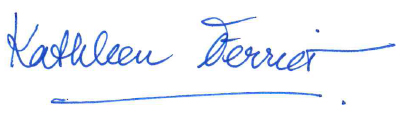 Kathleen Ferrier